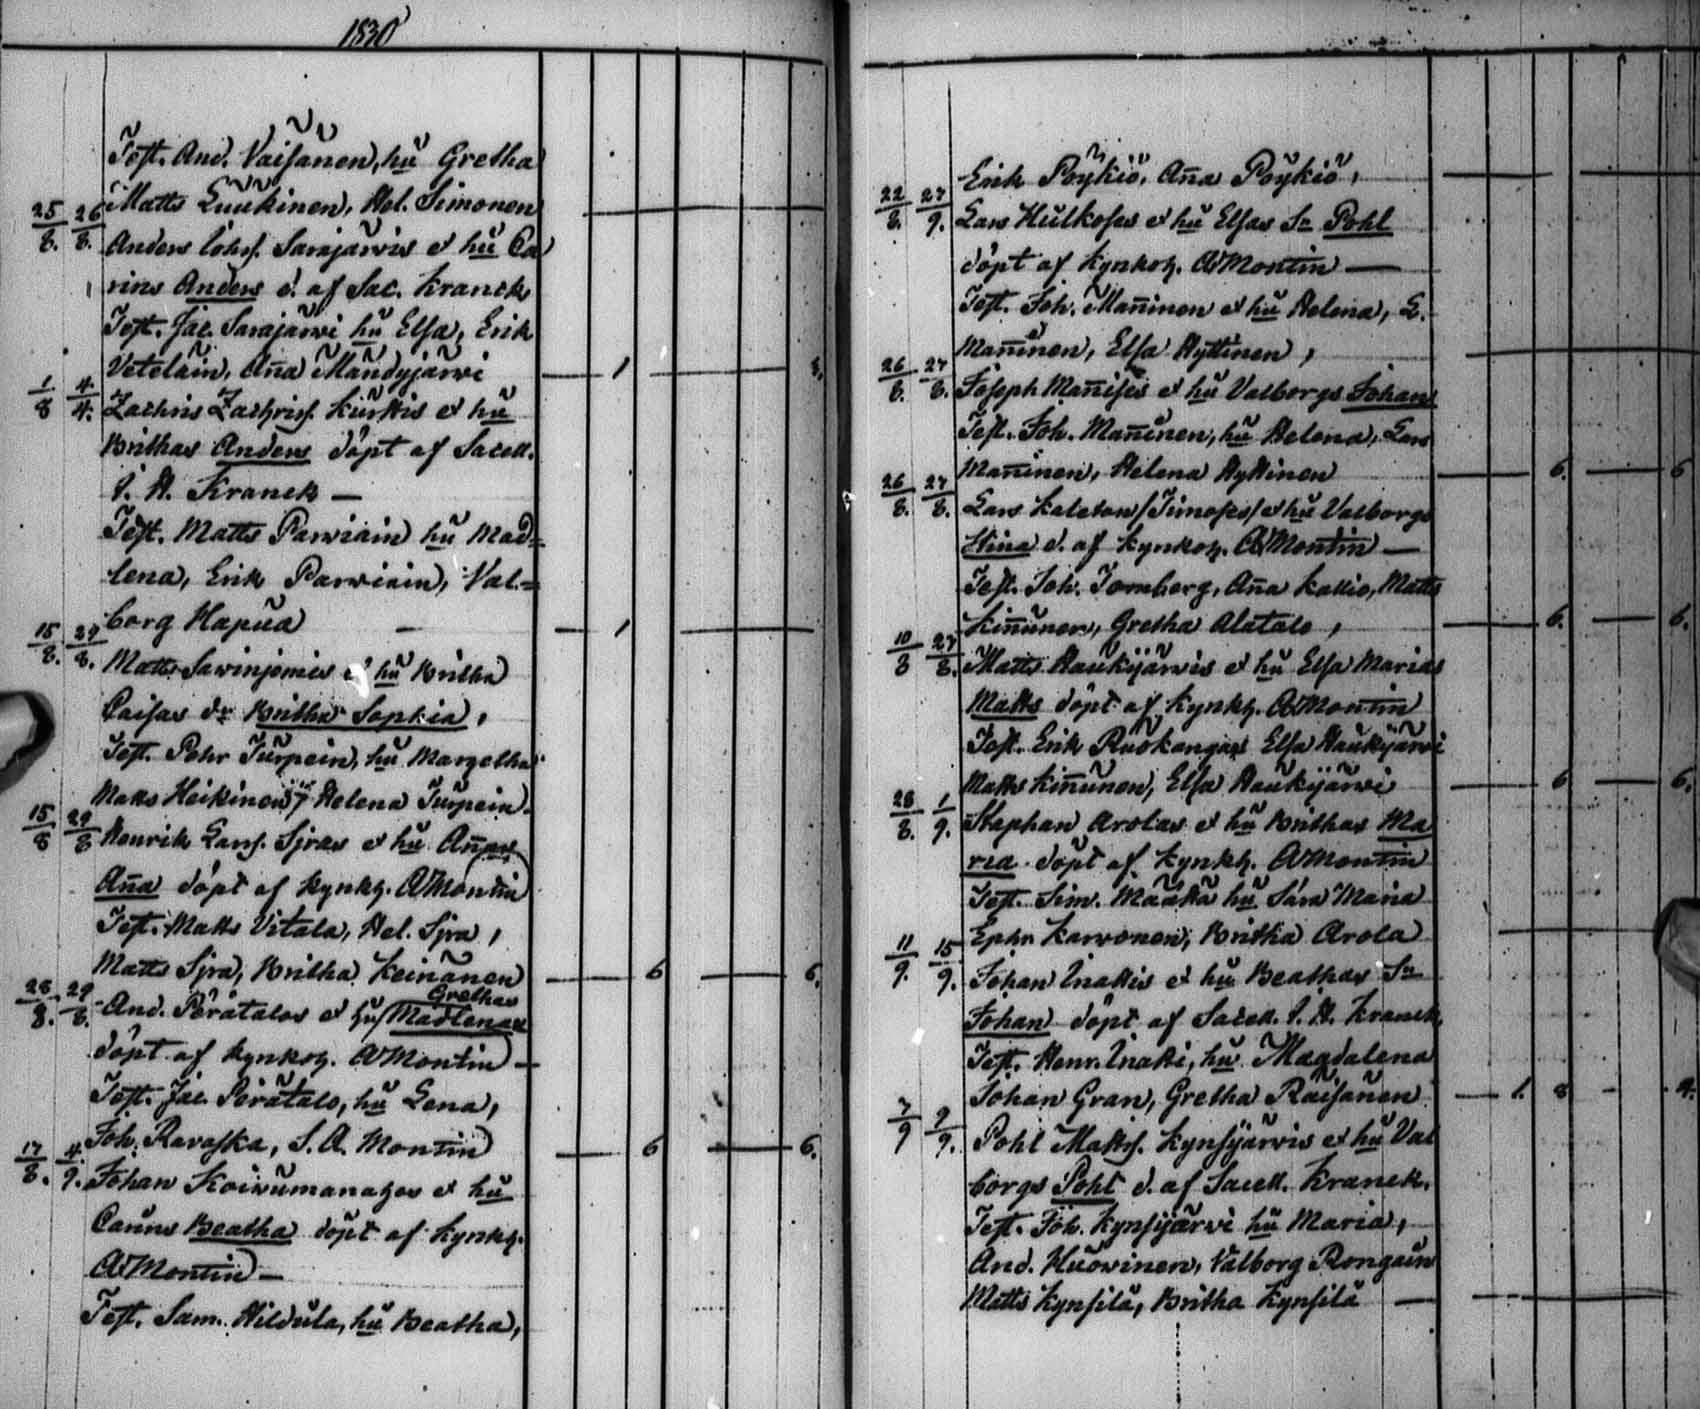 1830
Test. And. Vaisänen, hu Gretha
Matts Luukinen, Hel. Simonen
25/8. 26/8. Anders Johss. Sarajärvis et hu Ca
rins Anders d. af Sac. Kranck
Test. Jac. Sarajärvi hu Elsa, Erik
Vetelain, Aña Mändyjärvi — 1 —
1/8 4/4. Zachris Zachriss. Kurttis et hu
Brithas Anders döpt af Sacell.
J. H. Kranck —
Test. Matts Parviain hu Mad=
lena, Erik Parviain, Val=
borg Hapua — 1 —
15/8. 29/8. Matts Savinjemies et hu Britha
Caisas dr Britha Sophia,
Test. Pehr Turpein, hu Margetha
Matts Heikinen, Helena Turpein.
15/8 29/8 Henrik Larss. Sjras et hu Añas
Aña döpt af Kynkh. A Montin
Test. Matts Vitala, Hel. Sjra,
Matts Sjra, Britha Keinänen — 6 — 6.
28/8. 29/8. And. Perätalos et hu Grethas Madlenas
döpt af Kynkoh. A Montin —
Test. Jac. Perätalo, hu Lena,
Joh. Ravaska, S. A. Montin — 6 — 6.
17/8. 4/9. Johan Koivumanahos et hu
Carins Beatha döpt af Kynkh.
A Montin —
Test. Sam. Hildula, hu Beatha,
Erik Pöykiö, Aña Pöykiö,
22/8. 27/9. Lars Hulkoses et hu Elsas Sn Pohl
döpt af Kynkoh. A Montin —
Test. Joh. Mañinen et hu Helena, L.
Mañinen, Elsa Hyttinen,
26/8. 27/8. Joseph Mañises et hu Valborgs Johan
Test. Joh. Mañinen, hu Helena, Lars
Mañinen, Helena Hyttinen — 6. — 6
26/8. 27/8. Lars Kaletons/Timoses/et hu Valborgs
Stina d. af Kynkoh. A Montin —
Test. Joh. Tornberg, Aña Kallio, Matts
Kiñunen, Gretha Alatalo, — 6. — 6.
10/8 27/8. Matts Haukijärvis et hu Elsa Marias
Matts döpt af Kynkh. A Montin
Test. Erik Ruokangas Elsa Haukijärvi
Matts Kiñunen, Elsa Haukijärvi — 6 — 6.
28/8. 1/9. Staphan Arolas et hu Brithas Ma
ria döpt af Kynkh. A Montin
Test. Sim. Määttä hu Sara Maria
Ephr. Karvonen, Britha Arola
11/9. 15/9. Johan Inattis et hu Beathas Sn
Johan döpt af Sacell. J. H. Kranck,
Test. Henr. Inatti, hu Magdalena
Johan Gran, Gretha Räisänen — 1. 8 - 4.
7/9 9/9. Pohl Mattss. Kynsijärvis et hu Val
borgs Pohl d. af Sacell. Kranck.
Test. Joh. Kynsijärvi hu Maria,
And. Huovinen, Valborg Rongain
Matts Kynsilä, Britha Kynsilä —